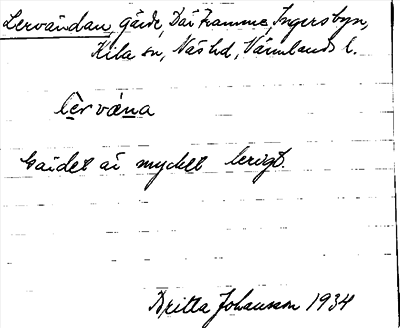 Lervändan, gärde, Där Framme, Ingersbyn,
Kila sn, Näs hd, Värmlands l.
lęrvæna
Gärdet är mycket lerigt.
Britta Johansson 1934